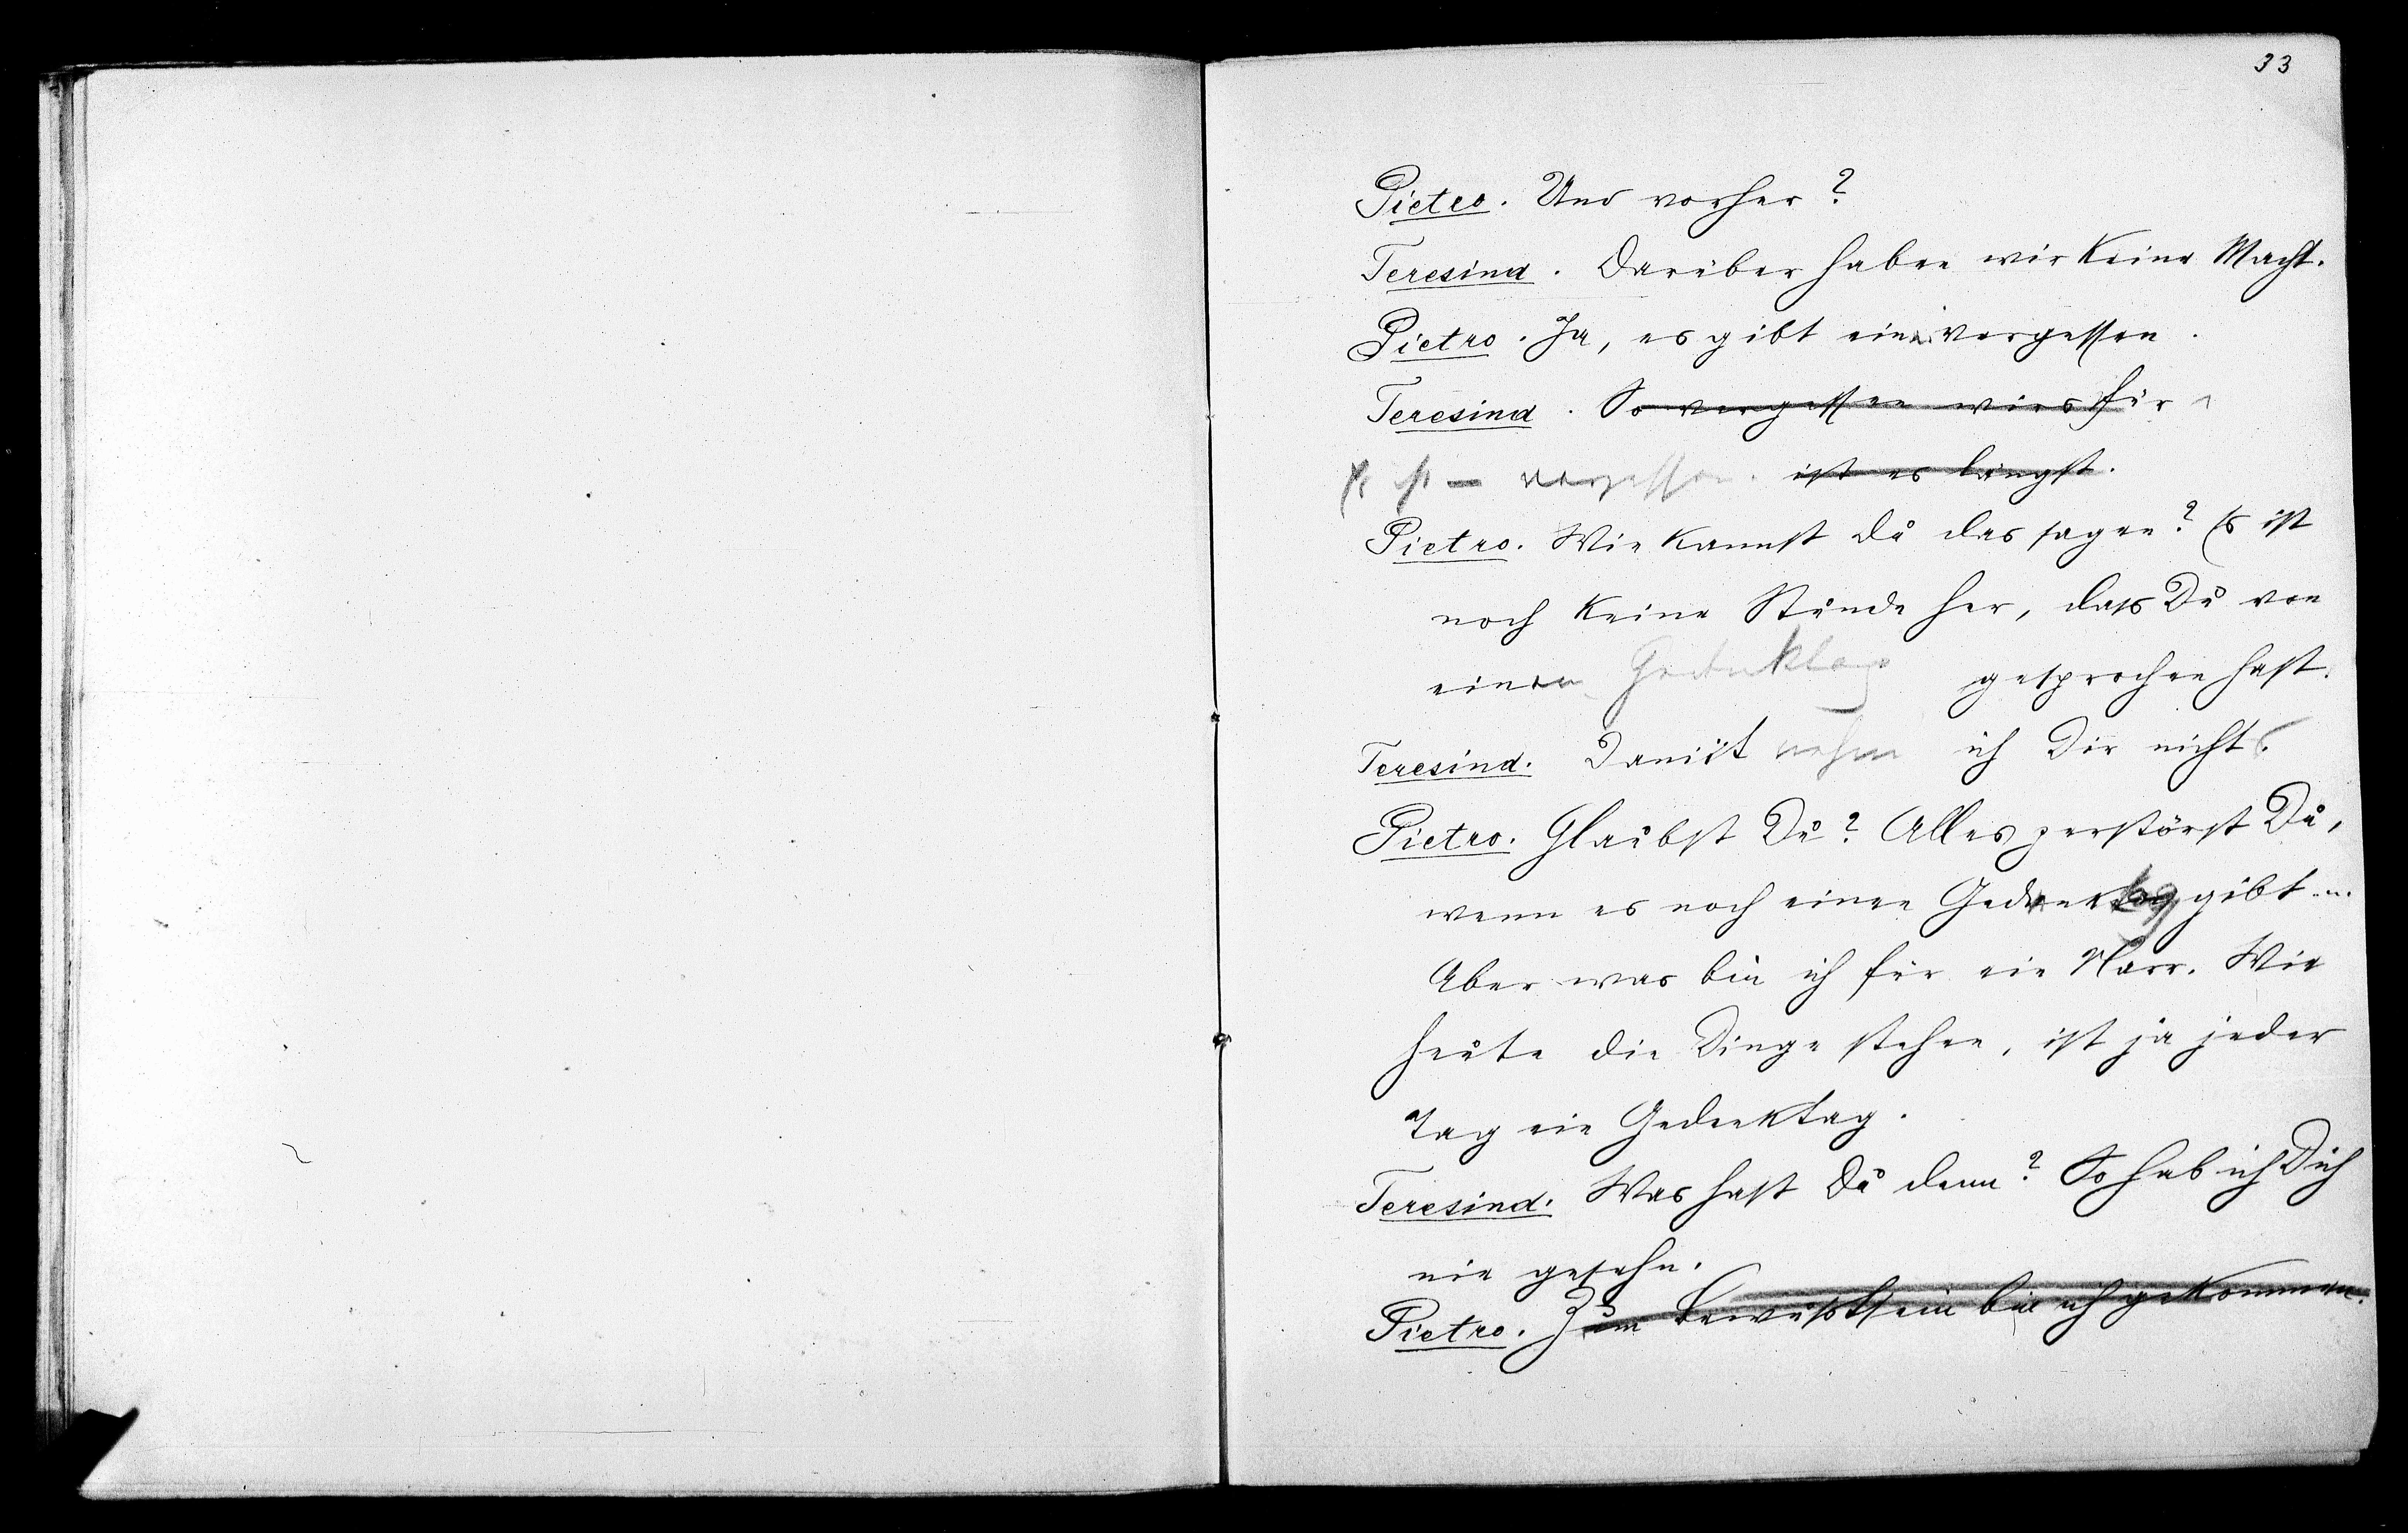 33
Pietro. Und vorher?
Teresina. Darüber haben wir keine Macht.
Pietro. Ja, es gibt ein Vergessen.
Teresina. So vergessen wirs für
Es ist – vergessen. ist es längst.
Pietro. Wie kannst Du das sagen? Es ist
noch keine Stunde her, dass Du von
einem Gedenktag gesprochen hast.
Teresina. Damit nehm ich Dir nichts.
Pietro. Glaubst Du? Alles zerstörst Du,
wenn es noch einen Gedenktag gibt ...
Aber was bin ich für ein Narr. Wie
heute die Dinge stehen, ist ja jeder
Tag ein Gedenktag.
Teresina. Was hast Du denn? So hab ich Dich
nie gesehn.
Pietro. Zum Bewusstsein bin ich gekommen.